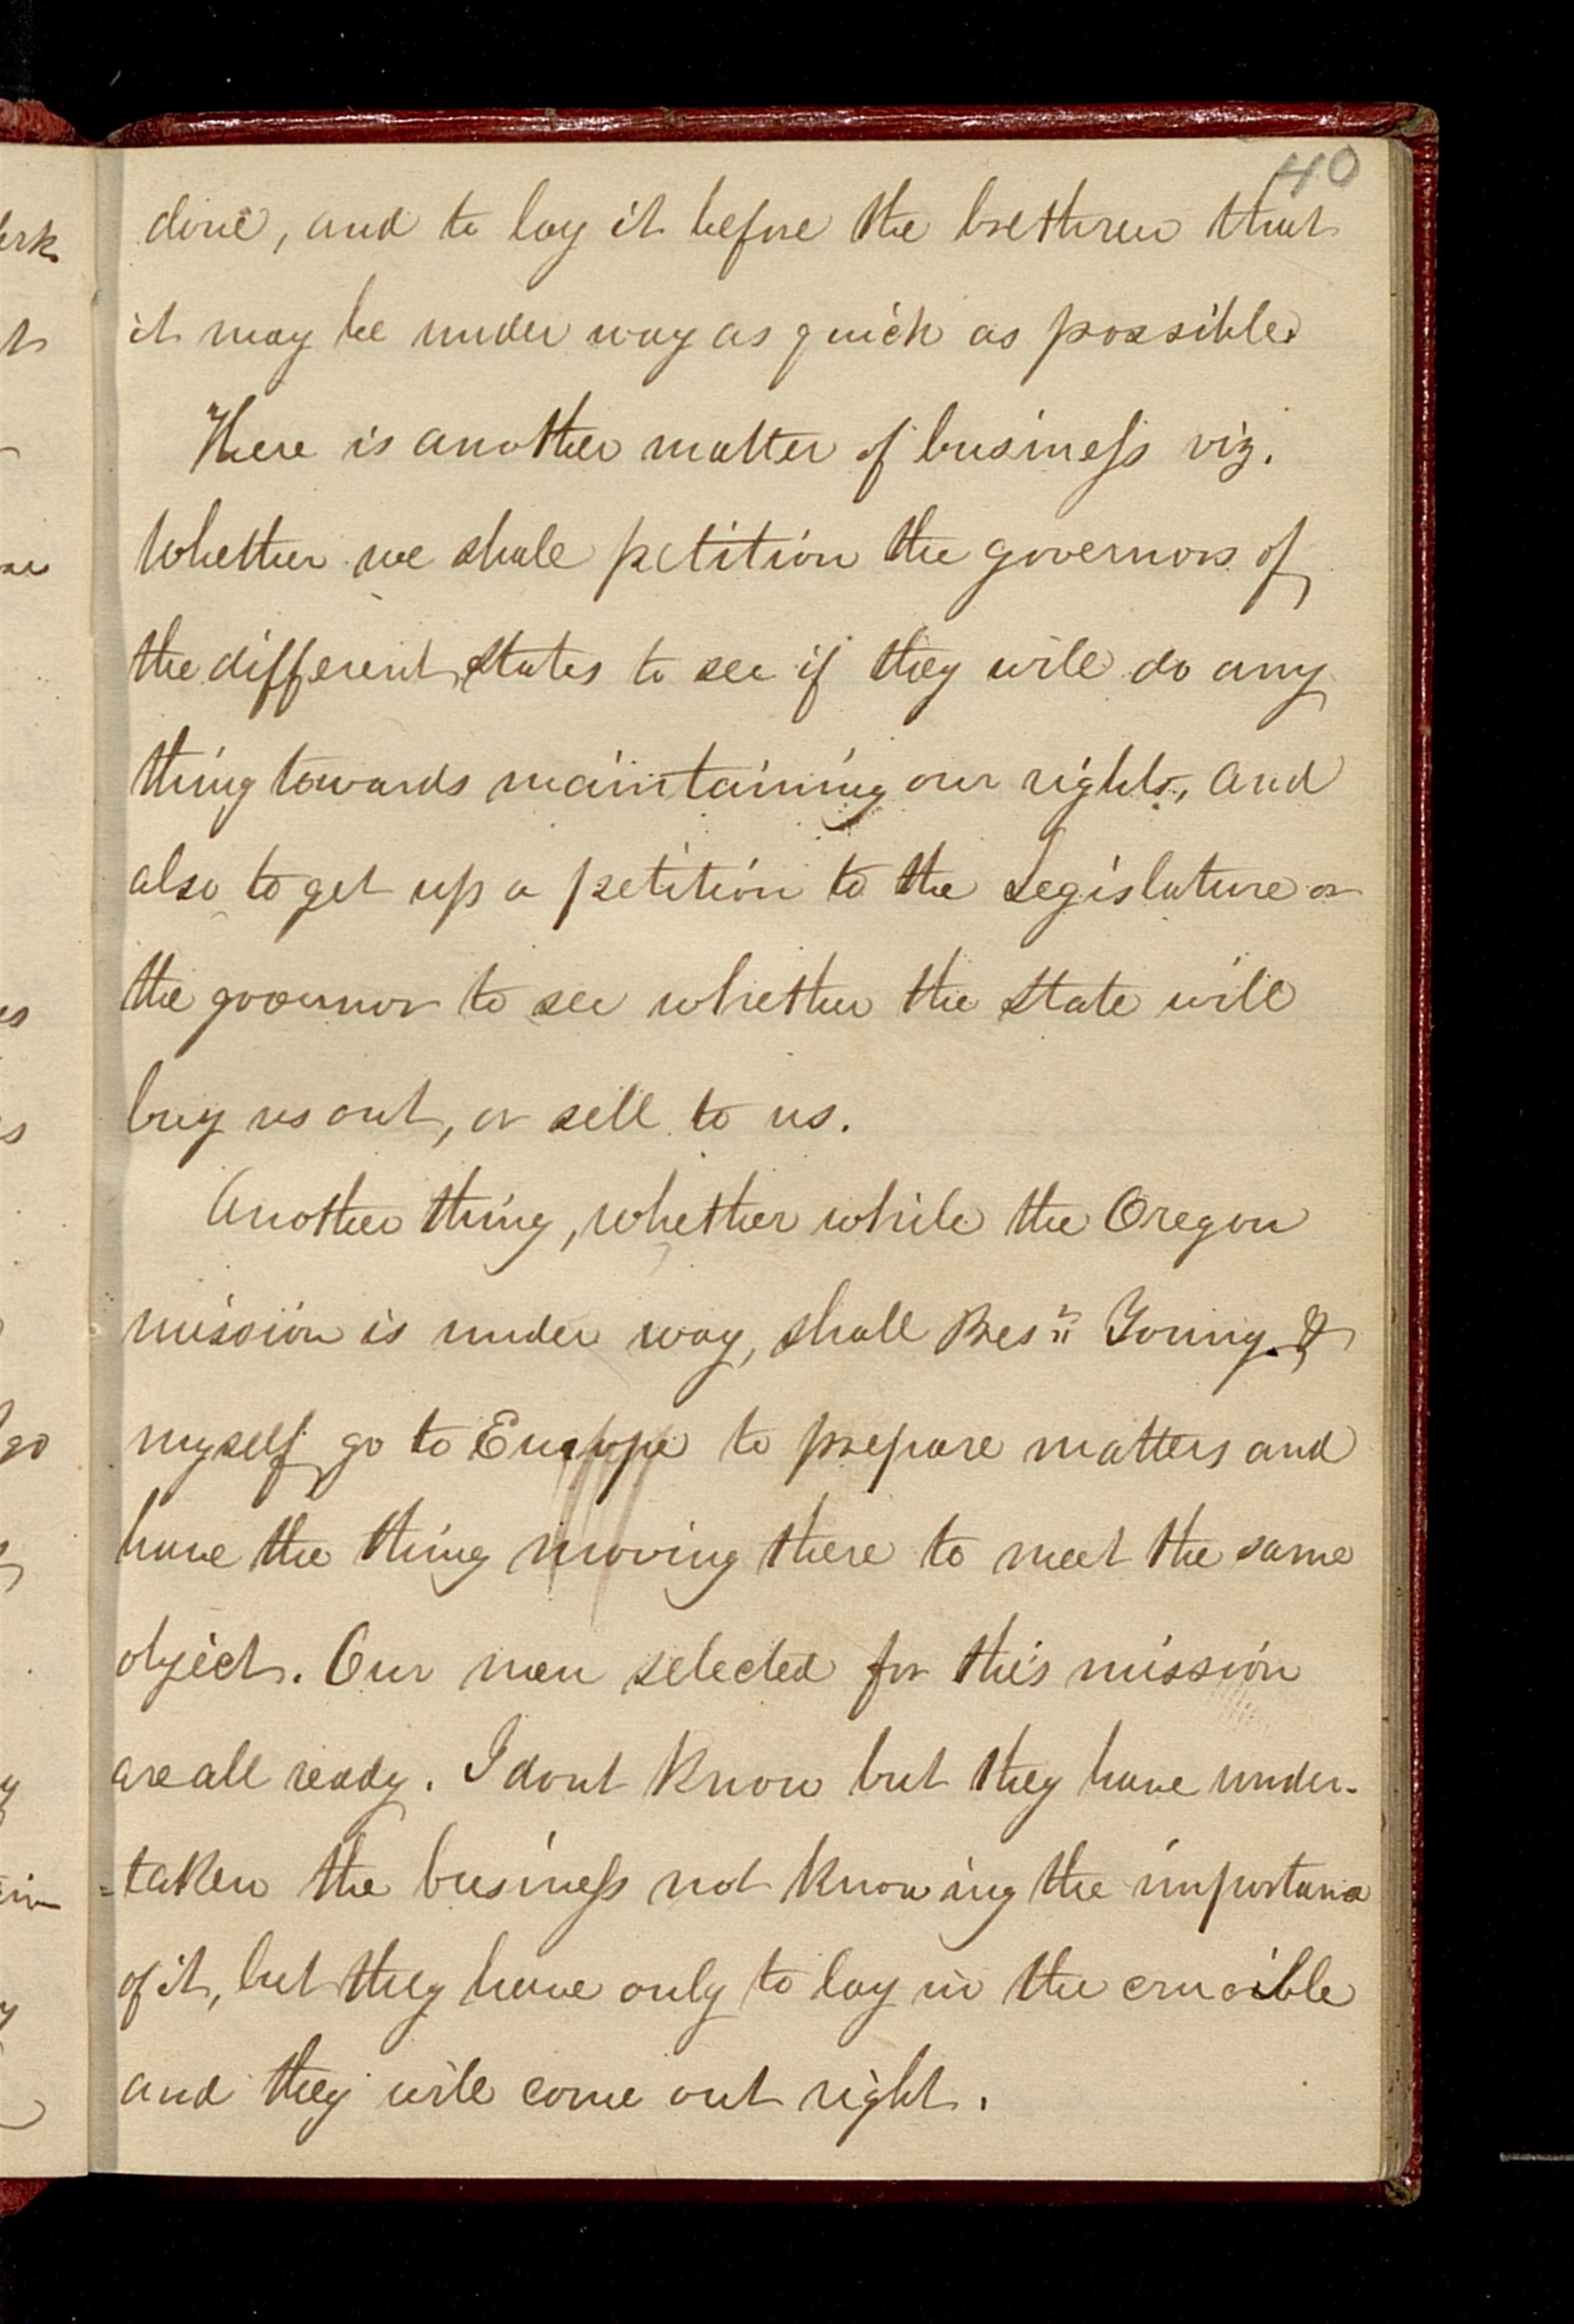 40
done, and to lay it before the brethren that
it may be under way as quick as possible.
There is another matter of business viz.
Whether we shall petition the governors of
the different States to see if they will do any
thing towards maintaining our rights, and
also to get up a petition to the Legislature or
the governor to see whether the State will
buy us out, or sell to us.
Another thing, whether while the Oregon
mission is under way, shall Pres.n Young. &
myself go to Europe to prepare matters and
have the thing moving there to meet the same
object. Our men selected for this mission
are all ready. I dont know but they have under-
=taken the business not knowing the importance
of it, but they have only to lay in the crucible
and they will come out right.